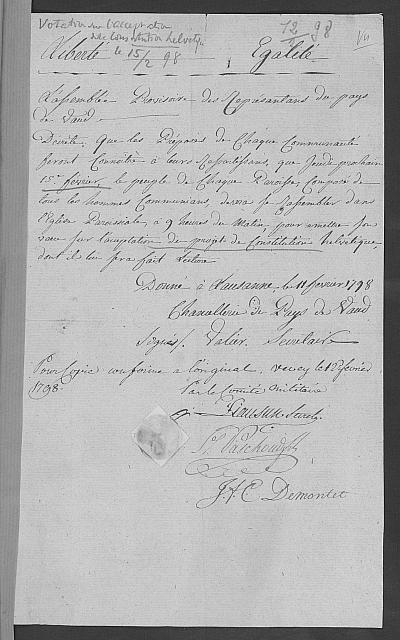 Votation sur l'acceptation
de la Constitution helvetiq
le 15/2 98
12/2 98
VII
Liberté Egalité
L'assemblée Provisoire des Representans du pays
de Vaud
Décrète, que les Préposés de Chaque Communauté
feront Connoitre à leurs Ressortissans, que Jeudi prochain
15e fevrier, le peuple de Chaque Paroisse, Composé de
tous les hommes Communians, devra se Rassembler dans
l'Eglise Paroissiale, à 9 heures du Matin, pour emettre son
vœu sur l'acceptation du projet de Constitution helvetique
dont il leur sera fait lecture
Donné à Lausanne, le 11 fevrier 1798
Chancellerie du Pays de Vaud
Signés, Valier, Secretaire
Pour Copie conforme à l'original, Vevey le 12 fevrier
1798
Par le Comité militaire
Secret.
J. F. C Demontet